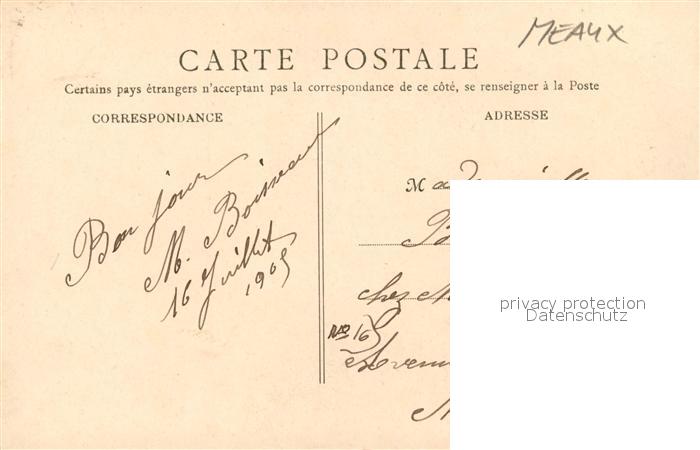 MEAUX
CARTE POSTALE
Certains pays étrangers n'acceptant pas la correspondance de ce côté, se renseigner à la Poste
CORRESPONDANCE
ADRESSE
Bon jour
M. Boisseau
16 Juillet
1905
M
chez M
No 16
privacy protection
Datenschutz